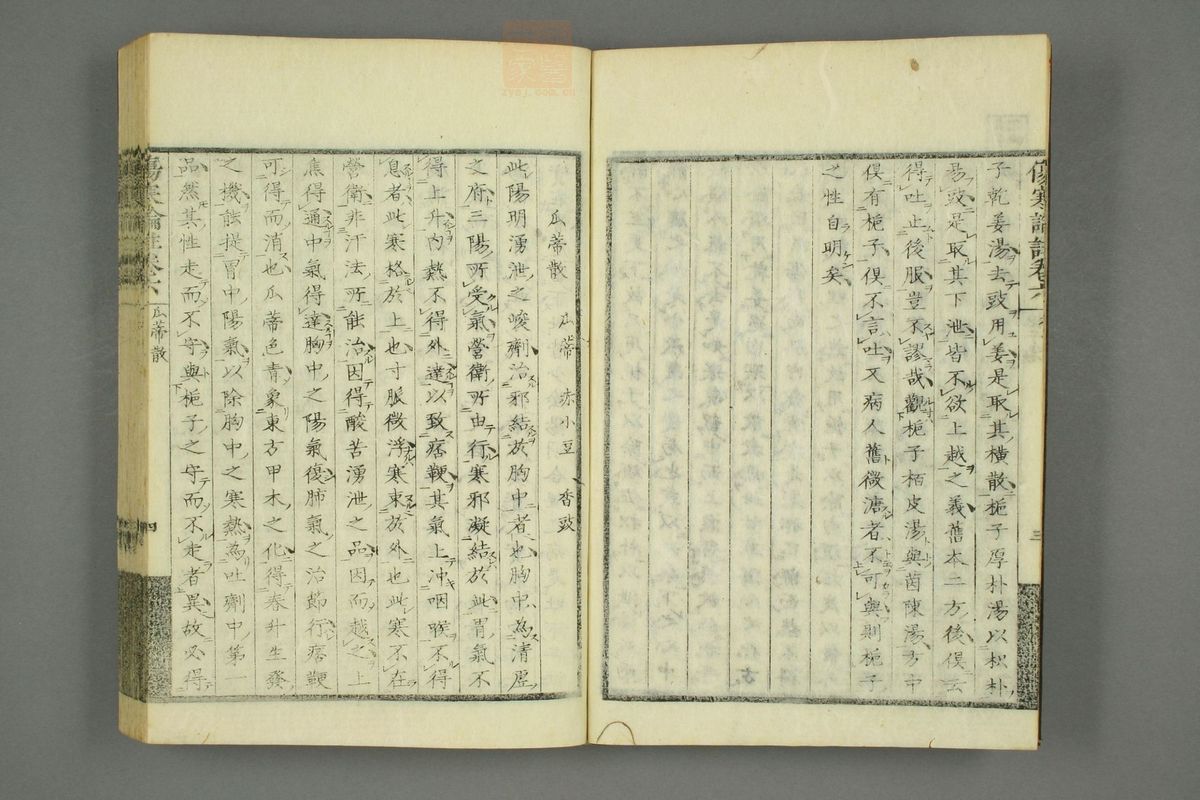 子乾姜湯去豉用姜是取其横散梔子厚朴湯以枳朴
易豉是取其下泄皆不欲上越之義舊本二方後俱云
得吐止後服豈不謬哉觀梔子栢皮湯與茵陳湯方中
俱有梔子俱不言吐又病人舊微溏者不可與則梔子
之性自明矣
瓜蒂散
瓜蒂 赤小豆 香豉
此陽明湧泄之峻劑治邪結於胸中者也胸中為清虛
之府三陽所受氣營衛所由行寒邪凝結於此胃氣不
得上升內熱不得外達以致痞鞕其氣上冲咽喉不得
息者此寒格於上也寸脈微浮寒束於外也此寒不在
營衛非汗法所能治因得酸苦湧泄之品因而越之上
焦得通中氣得達胸中之陽氣復肺氣之治節行痞鞕
可得而消也瓜蒂色青象東方甲木之化得春升生發
之機能提胃中陽氣以除胸中之寒熱為吐劑中第一
品然其性走而不守與梔子之守而不走者異故必得
傷寒論註卷六 瓜蒂散
四
三
zysj.com.cn